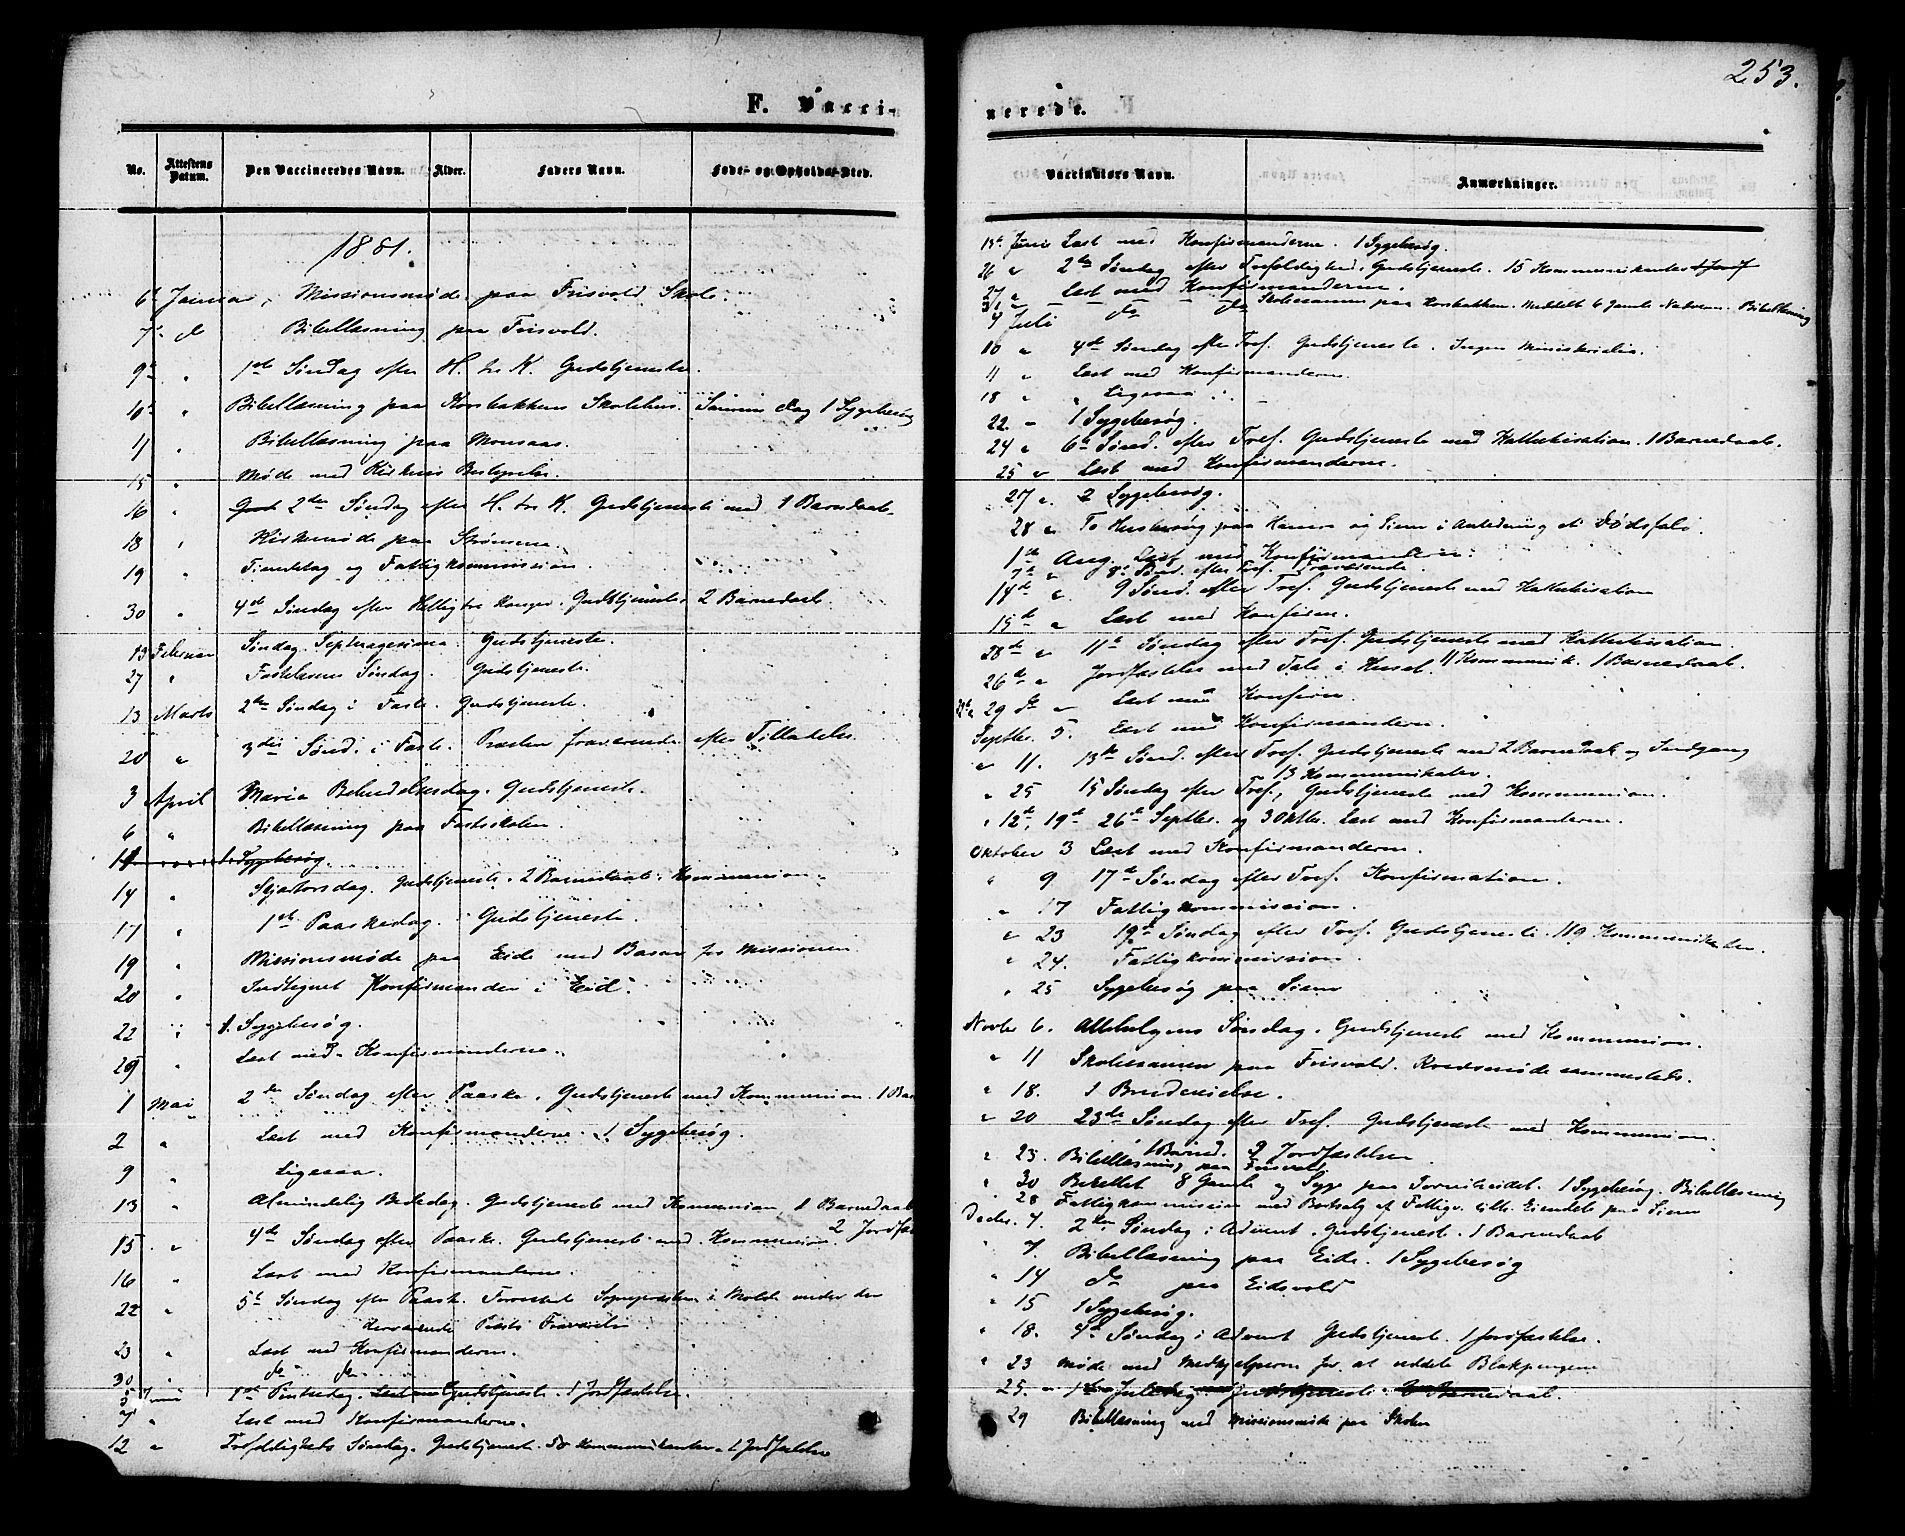 F. Vacci-
No. Attestens Datum. Den Vaccineredes Navn. Alder. Faders Navn. Føde- og Opholds-Sted.
1881.
6te Januar, Missionsmøde paa Frisvold Skole.
7de do Bibellæsning paa Frisvold.
9de " 1ste Søndag efter H. tre K. Gudstjeneste.
10de " Bibellæsning paa Horsbakkens Skolehus. Samme Dag 1 Sygebesøg
11 " Bibellæsning paa Monsaas.
15 " Møde med Kirkens Bestyrelse.
16 " 2den Søndag efter H. tre K. Gudstjeneste med 1 Barnedaab.
18 " Kirkemøde paa Strømme.
19 " og Fattigkommission.
30 " 4de Søndag efter Hellig tre Konger. Gudstjeneste 2 Barnedaab.
13 Februar Søndag Septuagesima Gudstjeneste.
27 " Fastelavns Søndag. Gudstjeneste.
13 Marts 2den Søndag i Faste. Gudstjeneste.
20 " 3die Sønd. i Faste. Præsten fraværende efter Tilladelse.
3 April Maria Bebudelsesdag. Gudstjeneste.
6 " Bibellæsning paa Fastskolen.
11 1 Sygebesøg.
14 " Skjærtorsdag. Gudstjeneste. 2 Barnedaab. Kommunion.
17 " 1ste Paaskedag. Gudstjeneste.
19 " Missionsmøde paa Eide med Basar for Missionen
20 " Indtegnet Konfirmander i Eid.
22 " 1. Sygebesøg.
25 " Læst med Konfirmanderne.
1 Mai 2den Søndag efter Paaske. Gudstjeneste med Kommunion. 1 Bar
2 " Læst med Konfirmanderne. 1 Sygebesøg.
9 " Ligesaa.
13 " Almindelig Bededag. Gudstjeneste med Kommunion 1 Barnedaab
2 Jordfæ
15 " 4de Søndag efter Paaske. Gudstjeneste med Kommunion.
16 " Læst med Konfirmanderne.
22 " 5te Søndag efter Paaske. Forrettet Sognepræsten i Molde under den
derværende Præsts Fravær
23 " Læst med Konfirmanderne.
30 " do do
5 Juni 1ste Pintsedag. Gudstjeneste. 1 Jordfæstelse.
7 " Læst med Konfirmanderne.
12 " Trefoldigheds Søndag. Gudstjeneste. 50 Kommunikanter. 1 Jordfæstelse
253.
nerede.
Vaccinators Navn. Anmærkninger.
13de Juni Læst med Konfirmanderne. 1 Sygebesøg.
26 " 2den Søndag efter Trefoldighed. Gudstjeneste. 15 Kommunikanter
27 " Læst med Konfirmanderne.
Skoleexamen paa Horsbakken. Meddelt 6 Gamle Nadveren. Bibellæsning
4 Juli do do
10 " 4de Søndag efter Tref. Gudstjeneste. Ingen Ministerialia.
11 " Læst med Konfirmanderne.
18 " " Ligesaa
22 " 1 Sygebesøg.
24 " 6te Sønd. efter Tref. Gudstjeneste med Kathekisation. 1 Barnedaab.
25 " Læst med Konfirmanderne.
27 " 2 Sygebesøg.
28 " To Husbesøg paa og i Anledning et Dødsfald.
1ste Aug. Læst med Konfirmanderne.
7de " 8de Sønd. efter Tref. Fraværende.
14de " 9 Sønd. efter Tref. Gudstjeneste med Kathekisation
15de " Læst med Konfirm.
28de " 11te Søndag efter Tref. Gudstjeneste med Kathekisation.
11 Kommunik. 1 Barnedaab.
26de " Jordfæstelse med Tale i Huset.
29 de " Læst med Konfirm.
Septbr. 5. Læst med Konfirmanderne.
" 11. 13de Sønd. efter Tref. Gudstjeneste med 2 Barnedaab og Indgang
13 Kommunikanter.
" 25 15 Søndag efter Tref., Gudstjeneste med Kommunion.
" 12te, 19de 26de Septbr. og 3 Oktbr. Læst med Konfirmanterne.
Oktober 3 Læst med Konfirmanderne.
" 9 17de Søndag efter Tref. Konfirmation.
" 17 Fattigkommission.
" 23 19de Søndag efter Tref. Gudstjeneste. 119 Kommunikanter.
" 24. Fattigkommission.
" 25 Sygebesøg paa
Novbr 6. Allehelgens Søndag. Gudstjeneste med Kommunion.
" 11 Skoleexamen paa Frisvold. Kredsmøde sammesteds.
" 18. 1 Brudevielse.
" 20 23de Søndag efter Tref. Gudstjeneste med Kommunion.
1 Barned. 2 Jordfæstelser
" 23. Bibellæsning paa Frisvold
" 30 Berettet 8 Gamle og Syge paa 1 Sygebesøg. Bibellæsning
" 28 Fattigkommission med Bortsalg af Fattigv. tilh. Eiendele paa
Decbr. 4. 2den Søndag i Advent. Gudstjeneste. 1 Barnedaab
" 7. Bibellæsning paa Eide. 1 Sygebesøg
" 14 do paa Eidsvold
" 15 1 Sygebesøg.
" 18. 4de Søndag i Advent Gudstjeneste. 1 Jordfæstelse.
" 23 Møde med Medhjælperne for at uddele Blokpengene
25. " 1ste Juledag Gudstjeneste. Barnedaab.
29 Bibellæsning med Missionsmøde paa Skolen